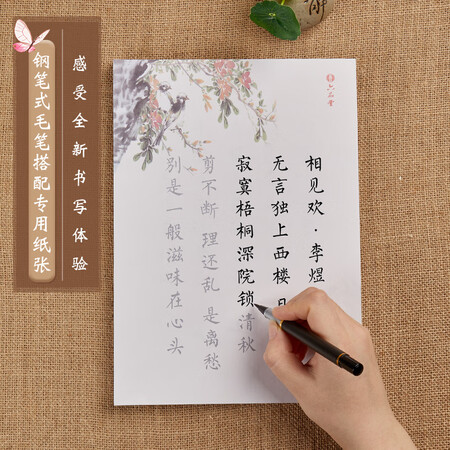 钢笔式毛笔搭配专用纸张
感受全新书写体验
六品堂
相见欢·李煜
无言独上西楼
寂寞梧桐深院锁清秋
剪不断 理还乱 是离愁
别是一般滋味在心头